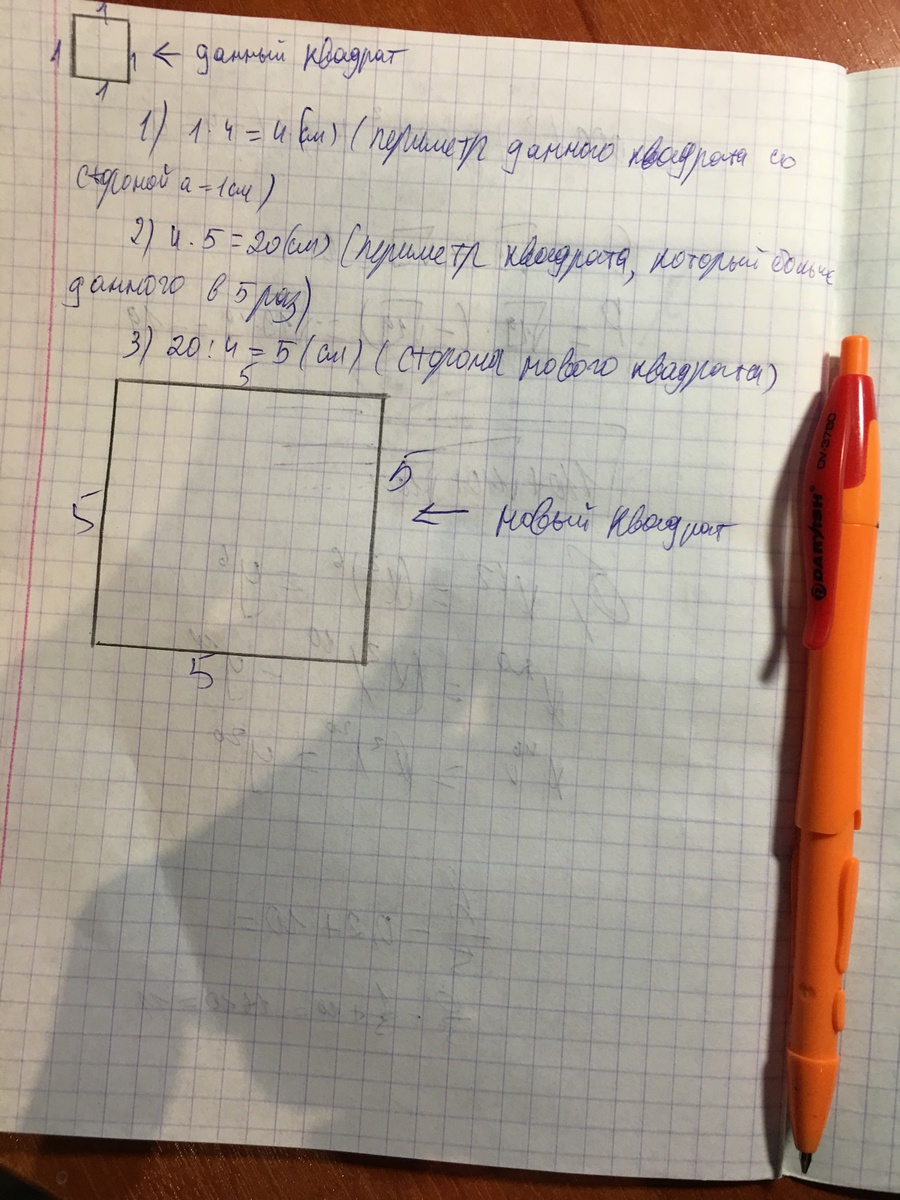 1
1 1 ← данный квадрат
1
1) 1·4=4(см) (периметр данного квадрата со
стороной a=1см)
2) 4·5=20(см) (периметр квадрата, который больше
данного в 5 раз)
3) 20:4=5(см) (сторона нового квадрата)
5
5
5 ← новый квадрат
5
DARVISH
DV-3780